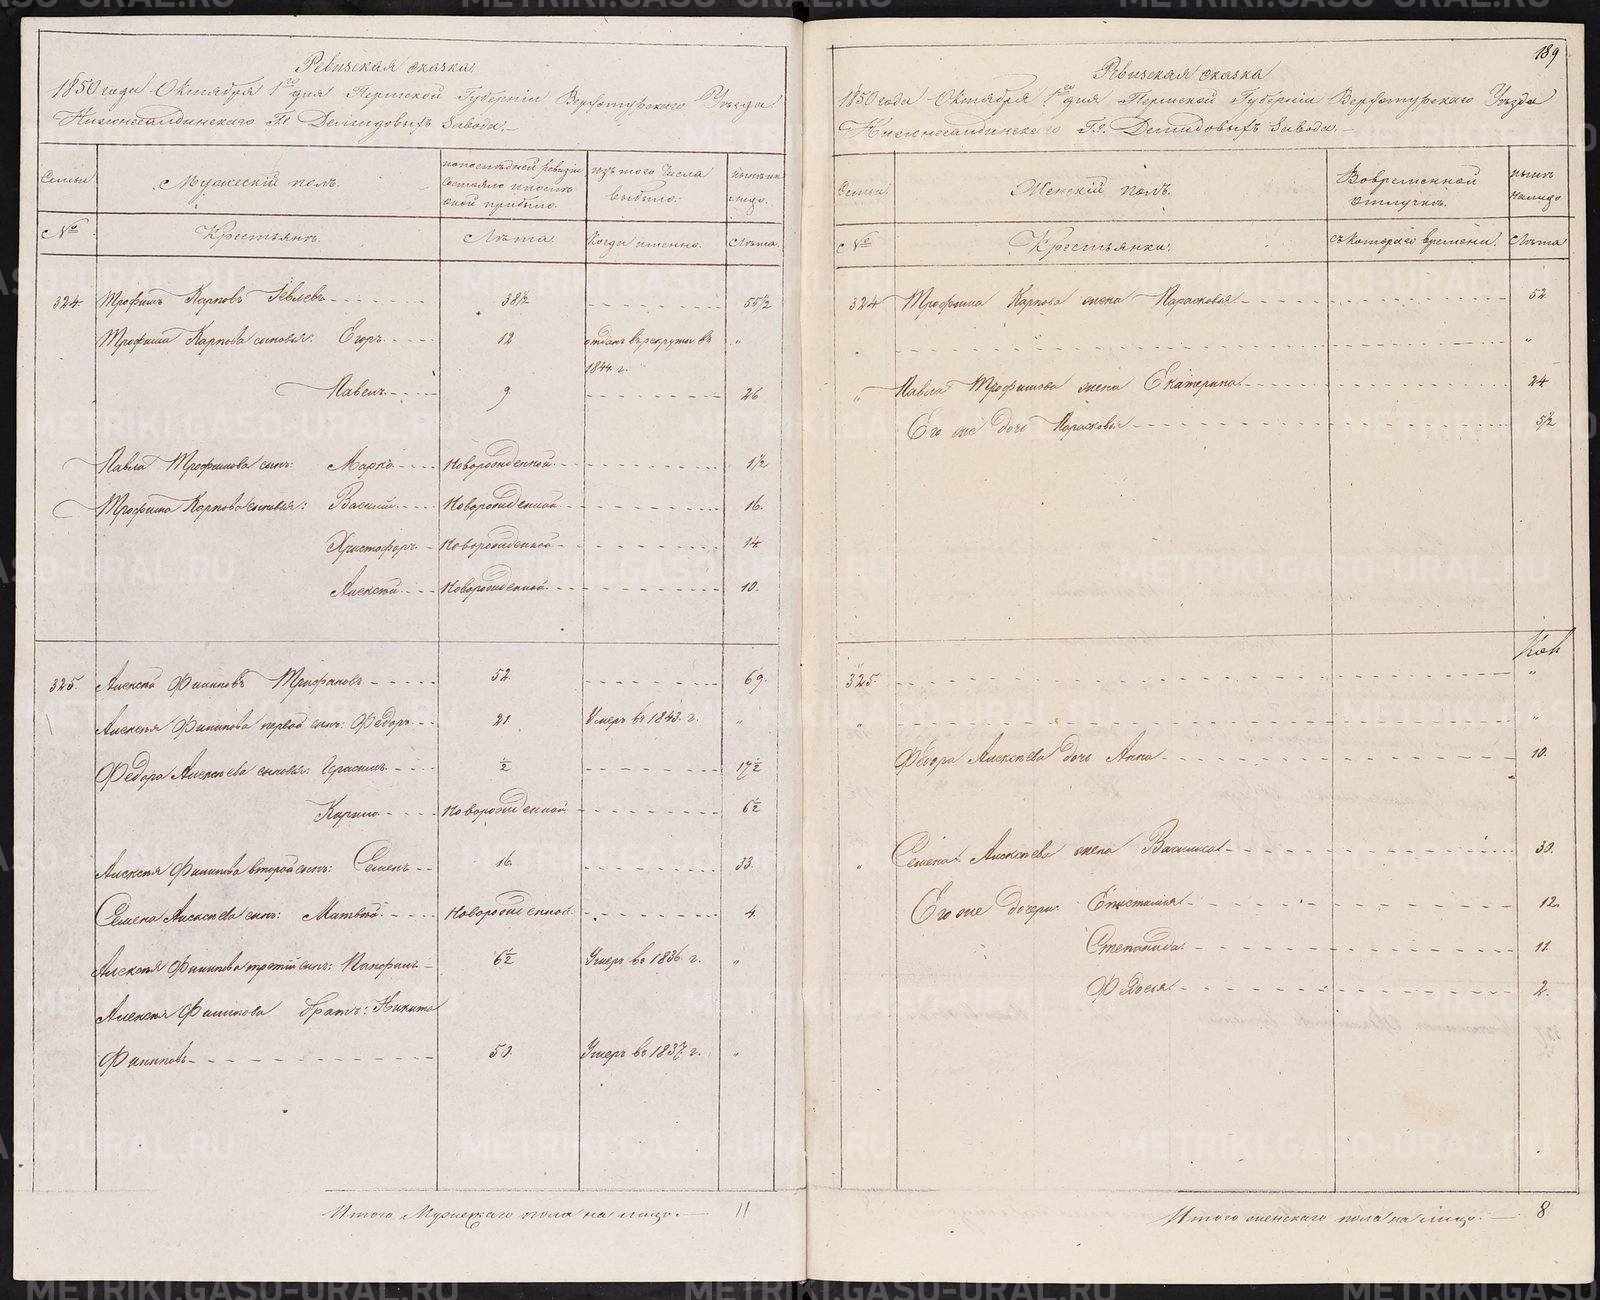 Ревизская сказка
1850 года Октября 1го дня Пермской Губерніи Верхотурскаго Уѣзда
Нижнесалдинскаго Г.г. Демидовыхъ Завода.
Семьи
Мужескій полъ.
по послѣдней ревизіи состояло и послѣ оной прибыло.
изъ того числа выбыло.
нынѣ на лицо.
№
Крестьянъ.
Лѣта
Когда именно.
Лѣта
324 Трофимъ Карповъ 38 1/2 55 1/2
Трофима Карпова сыновья: Егоръ 12 отданъ въ рекруты въ 1844 г. "
Павелъ 9 26
Павла Трофимова сынъ: Марко новорожденной 1 1/2
Трофима Карпова сыновья: Василій новорожденной 16.
Христофоръ новорожденной 14
Алексѣй новорожденной 10.
325. Алексѣй Филиповъ Трифановъ 52 69.
Алексѣя Филипова первой сынъ: Федоръ 21 Умеръ въ 1843. г. "
Федора Алексѣева сыновья: Герасимъ 1/2 17 1/2
Карпъ новорожденной 6 1/2
Алексѣя Филипова второй сынъ: Семенъ 16. 33.
Семена Алексѣева сынъ: Матвѣй новорожденной 4
Алексѣя Филипова третій сынъ: Панфилъ 6 1/2 Умеръ въ 1836. г. "
Алексѣя Филипова братъ: Никита
Филиповъ 50. Умеръ въ 1837. г. "
Итого Мужескаго пола на лицо. 11
189
Ревизская сказка
1850 года Октября 1го дня Пермской Губерніи Верхотурскаго Уѣзда
Нижнесалдинскаго Г.г. Демидовыхъ Завода.
Семьи
Женскій полъ.
Во временной отлучкѣ.
нынѣ на лицо
№
Крестьянки.
съ котораго времени.
Лѣта
324 Трофима Карпова жена Парасковья 52
"
" Павла Трофимова жена Екатерина 24
Его же дочь Парасковья 5 1/2
325. "
" "
Федора Алексѣева дочь Анна 10.
" Семена Алексѣева жена Василиса 30.
Его же дочери: Епистимья 12.
Степанида 11.
Федосья 2.
Итого женскаго пола на лицо. 8
METRIKI.GASO-URAL.RU